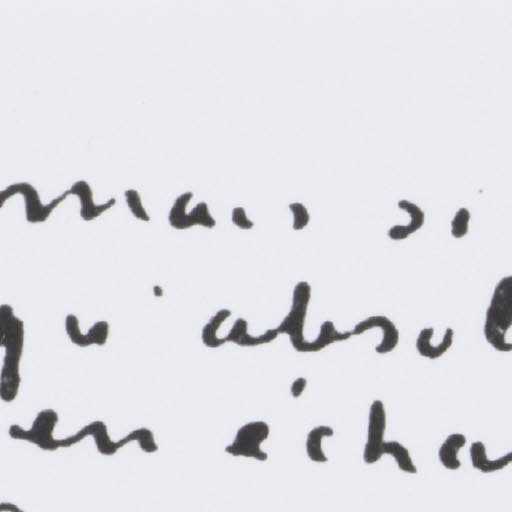 mais si
qu'absol
en échan